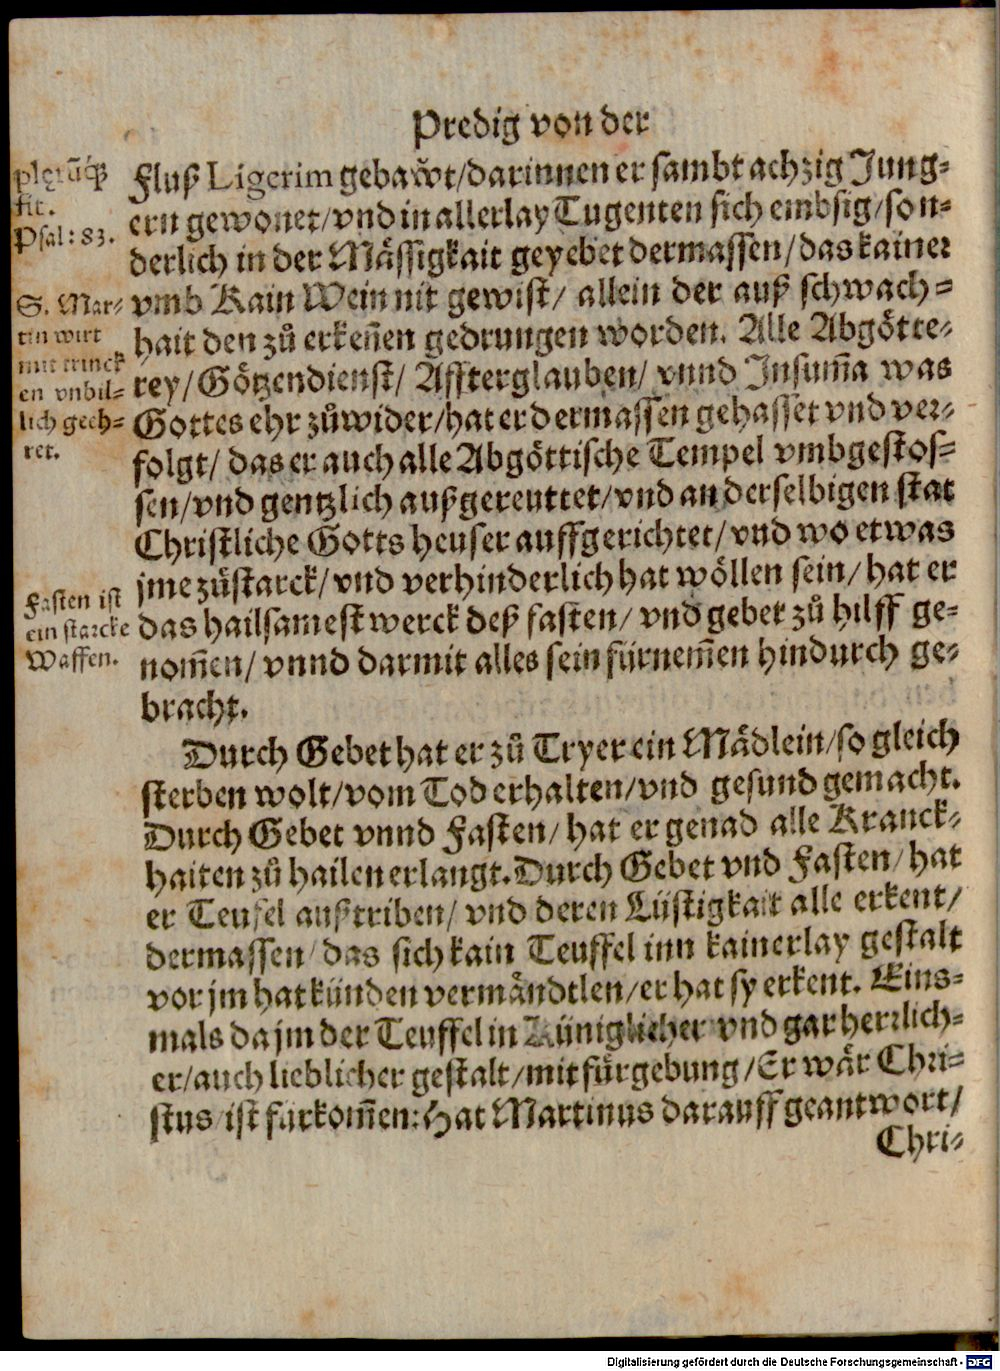 Predig von der
plerũq́
fit.
Psal: 83.
S. Mar-
tin wirt
mit trinck
en vnbil-
lich geeh-
ret.
Fasten ist
ein starcke
Waffen.
Fluß Ligerim gebawt/darinnen er sambt achzig Jung-
ern gewonet/vnd in allerlay Tugenten sich embsig/son-
derlich in der Mässigkait geyebet dermassen/das kainer
vmb Kain Wein nit gewist/ allein der auß schwach-
hait den zů erkeñen gedrungen worden. Alle Abgötte-
rey/Götzendienst/ Affterglauben/ vnnd Insum̃a was
Gottes ehr zůwider/hat er dermassen gehasset vnd ver-
folgt/ das er auch alle Abgöttische Tempel vmbgestos-
sen/vnd gentzlich außgereuttet/vnd an derselbigen stat
Christliche Gotts heuser auffgerichtet/ vnd wo etwas
jme zůstarck/vnd verhinderlich hat wöllen sein/ hat er
das hailsamest werck deß fasten/ vnd gebet zů hilff ge-
nom̃en/ vnnd darmit alles sein fürnem̃en hindurch ge-
bracht.
Durch Gebet hat er zů Tryer ein Mädlein/so gleich
sterben wolt/vom Tod erhalten/vnd gesund gemacht.
Durch Gebet vnnd Fasten/ hat er genad alle Kranck-
haiten zů hailen erlangt. Durch Gebet vnd Fasten/ hat
er Teufel außtriben/ vnd deren Lüstigkait alle erkent/
dermassen/das sich kain Teuffel inn kainerlay gestalt
vor jm hat künden vermändtlen/er hat sy erkent. Eins-
mals da jm der Teuffel in Küniglicher vnd gar herrlich-
er/auch lieblicher gestalt/mit fürgebung/Er wär Chri-
stus/ist fürkom̃en: Hat Martinus darauff geantwort/
Chri-
Digitalisierung gefördert durch die Deutsche Forschungsgemeinschaft - DFG